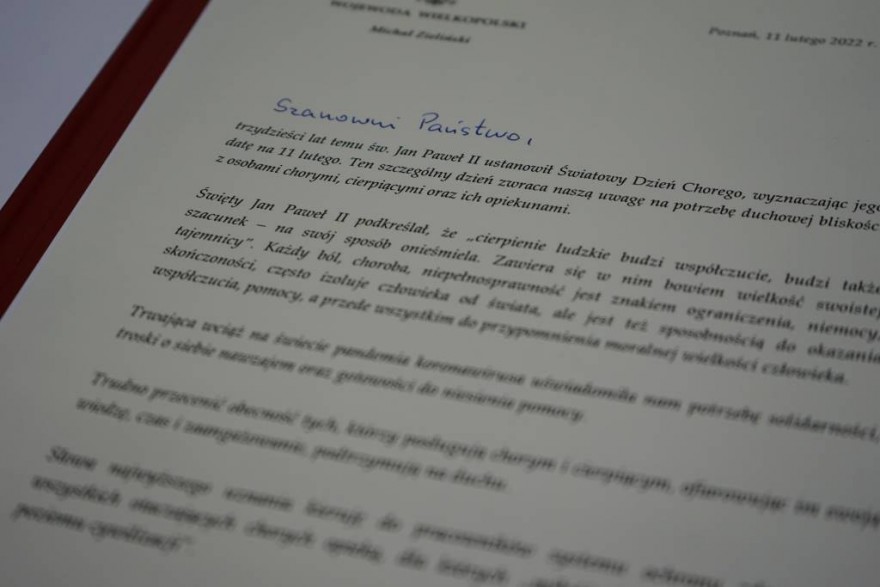 WOJEWODA WIELKOPOLSKI
Michał Zieliński
Poznań, 11 lutego 2022 r.
Szanowni Państwo,
trzydzieści lat temu św. Jan Paweł II ustanowił Światowy Dzień Chorego, wyznaczając jego
datę na 11 lutego. Ten szczególny dzień zwraca naszą uwagę na potrzebę duchowej bliskości
z osobami chorymi, cierpiącymi oraz ich opiekunami.
Święty Jan Paweł II podkreślał, że „cierpienie ludzkie budzi współczucie, budzi także
szacunek – na swój sposób onieśmiela. Zawiera się w nim bowiem wielkość swoistej
tajemnicy”. Każdy ból, choroba, niepełnosprawność jest znakiem ograniczenia, niemocy,
skończoności, często izoluje człowieka od świata, ale jest też sposobnością do okazania
współczucia, pomocy, a przede wszystkim do przypomnienia moralnej wielkości człowieka.
Trwająca wciąż na świecie pandemia koronawirusa uświadomiła nam potrzebę solidarności,
troski o siebie nawzajem oraz gotowości do niesienia pomocy.
Trudno przecenić obecność tych, którzy posługują chorym i cierpiącym, ofiarowując im swoją
wiedzę, czas i zaangażowanie, podtrzymują na duchu.
Słowa najwyższego uznania kieruję do pracowników systemu ochrony
wszystkich otaczających chorych opieką, dla których
poziomu cywilizacji”.